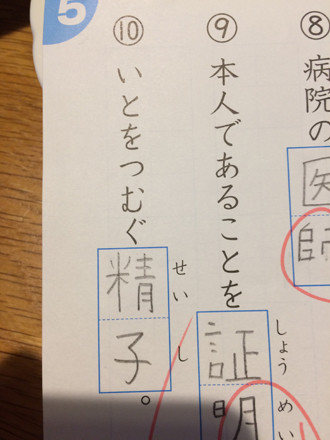 5
⑧病院の医師
⑨本人であることを証明
しょうめい
⑩いとをつむぐ精子。
せいし